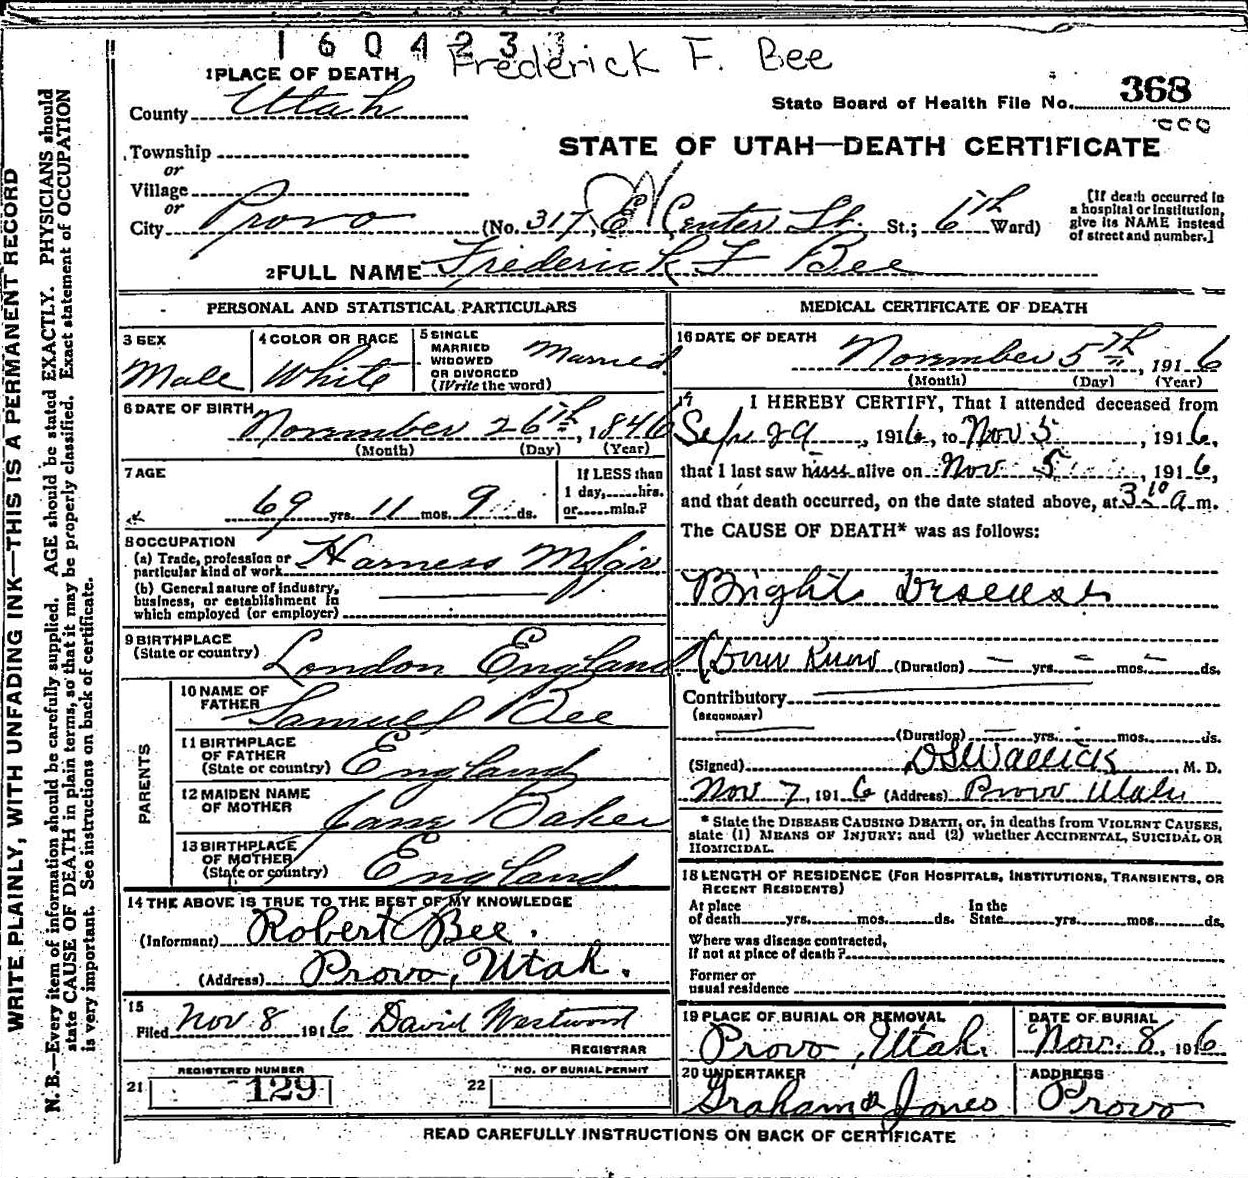 160423
Frederick F. Bee
1 PLACE OF DEATH
County Utah
State Board of Health File No. 368
Township
STATE OF UTAH—DEATH CERTIFICATE
or
Village
or
City Provo (No. 317, E Center St. St.; 6th Ward)
[If death occurred in
a hospital or institution,
give its NAME instead
of street and number.]
2 FULL NAME Frederick F Bee
PERSONAL AND STATISTICAL PARTICULARS
3 SEX
Male
4 COLOR OR RACE
White
5 SINGLE
MARRIED
WIDOWED
OR DIVORCED
(Write the word)
Married
6 DATE OF BIRTH
November 26th, 1846
(Month) (Day) (Year)
7 AGE
69 yrs. 11 mos. 9 ds.
If LESS than
1 day,......hrs.
or......min.?
8 OCCUPATION
(a) Trade, profession or
particular kind of work Harness Mfgr
(b) General nature of industry,
business, or establishment in
which employed (or employer)
9 BIRTHPLACE
(State or country) London England
PARENTS
10 NAME OF
FATHER Samuel Bee
11 BIRTHPLACE
OF FATHER
(State or country) England
12 MAIDEN NAME
OF MOTHER Jane Baker
13 BIRTHPLACE
OF MOTHER
(State or country) England
14 THE ABOVE IS TRUE TO THE BEST OF MY KNOWLEDGE
(Informant) Robert Bee.
(Address) Provo, Utah.
15
Filed Nov 8 1916 David Westwood
REGISTRAR
21 REGISTERED NUMBER
129
22 NO. OF BURIAL PERMIT
MEDICAL CERTIFICATE OF DEATH
16 DATE OF DEATH
November 5th, 1916
(Month) (Day) (Year)
17 I HEREBY CERTIFY, That I attended deceased from
Sept 29, 1916, to Nov 5, 1916,
that I last saw him alive on Nov 5, 1916,
and that death occurred, on the date stated above, at 3 10 a m.
The CAUSE OF DEATH* was as follows:
Bright disease
(Dont Know (Duration) yrs. mos. ds.
Contributory
(SECONDARY)
(Duration) yrs. mos. ds.
(Signed) , M. D.
Nov 7, 1916 (Address) Provo Utah
* State the DISEASE CAUSING DEATH, or, in deaths from VIOLENT CAUSES,
state (1) MEANS OF INJURY; and (2) whether ACCIDENTAL, SUICIDAL OR
HOMICIDAL.
18 LENGTH OF RESIDENCE (FOR HOSPITALS, INSTITUTIONS, TRANSIENTS, OR
RECENT RESIDENTS)
At place
of death......yrs.......mos.......ds.
In the
State......yrs.......mos.......ds,
Where was disease contracted,
if not at place of death?
Former or
usual residence
19 PLACE OF BURIAL OR REMOVAL
Provo, Utah.
DATE OF BURIAL
Nov. 8, 1916
20 UNDERTAKER
Graham & Jones
ADDRESS
Provo
READ CAREFULLY INSTRUCTIONS ON BACK OF CERTIFICATE
WRITE PLAINLY, WITH UNFADING INK—THIS IS A PERMANENT RECORD
N. B.—Every item of information should be carefully supplied. AGE should be stated EXACTLY. PHYSICIANS should
state CAUSE OF DEATH in plain terms, so that it may be properly classified. Exact statement of OCCUPATION
is very important. See instructions on back of certificate.